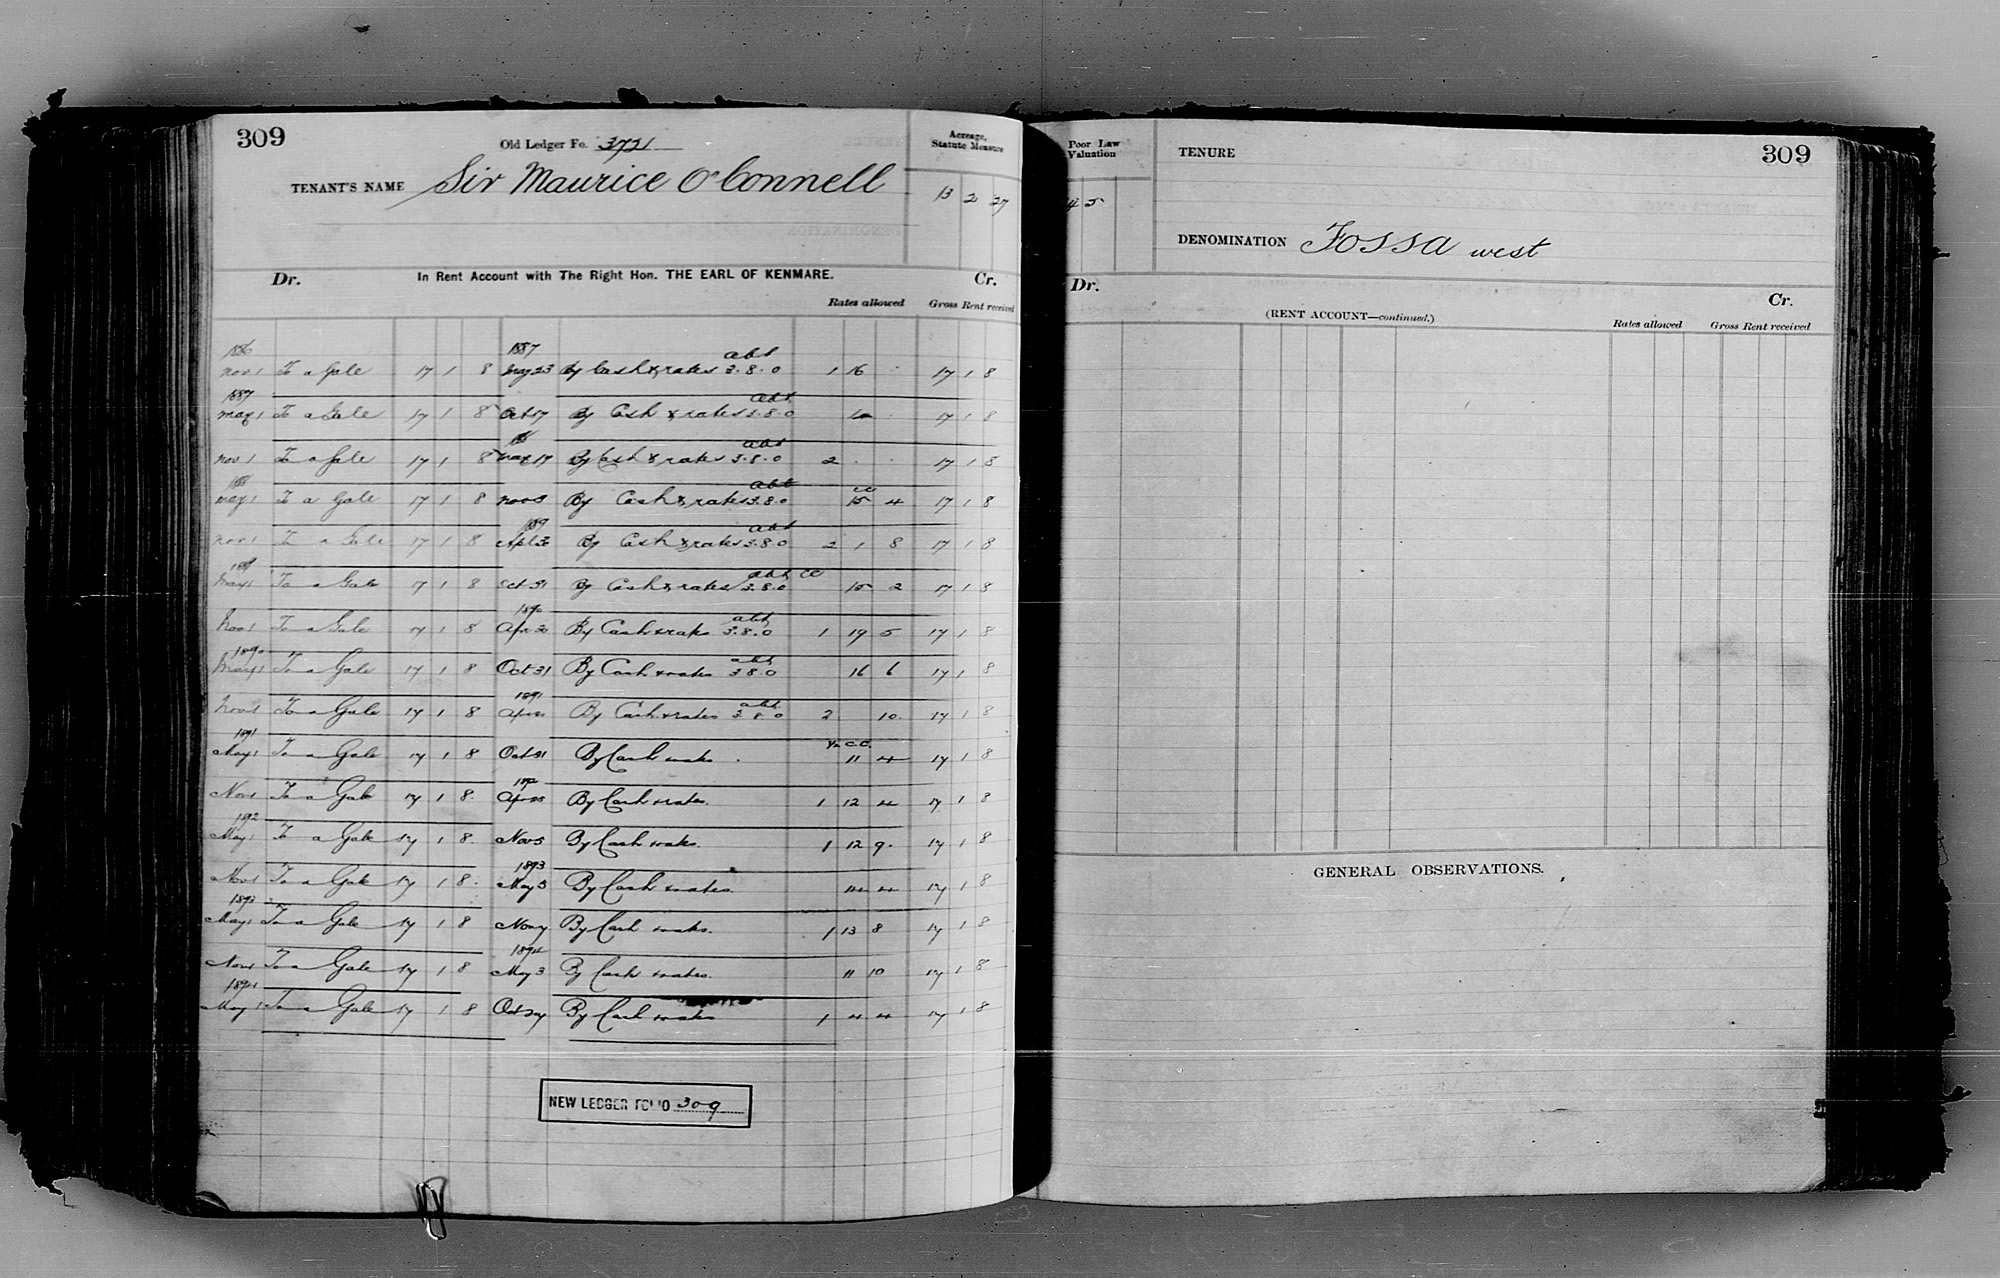 309
Old Ledger Fo. 3721
TENANT'S NAME Sir Maurice O'Connell
Acreage, Statute Measure
13 2 27
Dr. In Rent Account with The Right Hon. THE EARL OF KENMARE. Cr.
Rates allowed Gross Rent received
1886 1887 abt
Nov 1 To a Gale 17 1 8 May 23 By Cash & rates 3.8.0 1 16 . 17 1 8
1887 abt
May 1 To a Gale 17 1 8 Oct 17 By Cash & rates 3.8.0 17 1 8
abt
Nov 1 To a Gale 17 1 8 By Cash & rates 3.8.0 2 . . 17 1 8
188 abt
May 1 To a Gale 17 1 8 Nov By Cash & rates 3.8.0 15 4 17 1 8
1889 abt
Nov 1 To a Gale 17 1 8 By Cash & rates 3.8.0 2 1 8 17 1 8
1889 abt cc
May 1 To a Gale 17 1 8 Oct 31 By Cash & rates 3.8.0 15 2 17 1 8
1890 abt
Nov 1 To a Gale 17 1 8 Apr 30 By Cash & rates 3.8.0 1 19 5 17 1 8
1890 abt
May 1 To a Gale 17 1 8 Oct 31 By Cash & rates 3 8 0 16 6 17 1 8
1891 abt
Nov 1 To a Gale 17 1 8 Apr By Cash & rates 3.8.0 2 10. 17 1 8
1891 ½ c.c.
May 1 To a Gale 17 1 8 Oct 31 By Cash & rates 11 4 17 1 8
1892
Nov 1 To a Gale 17 1 8. Apr By Cash & rates. 1 12 4 17 1 8
1892
May 1 To a Gale 17 1 8. Nov 5 By Cash & rates. 1 12 9. 17 1 8
1893
Nov 1 To a Gale 17 1 8. May 3 By Cash & rates. 14 4 17 1 8
1893
May 1 To a Gale 17 1 8 Nov 7 By Cash & rates. 1 13 8 17 1 8
1894
Nov 1 To a Gale 17 1 8 May 3 By Cash & rates. 11 10 17 1 8
1894
May 1 To a Gale 17 1 8 Oct 27 By Cash & rates 1 4 4 17 1 8
NEW LEDGER FOLIO 309
Poor Law Valuation
4 5
TENURE
309
DENOMINATION Fossa west
Dr. Cr.
(RENT ACCOUNT—continued.)
Rates allowed Gross Rent received
GENERAL OBSERVATIONS.